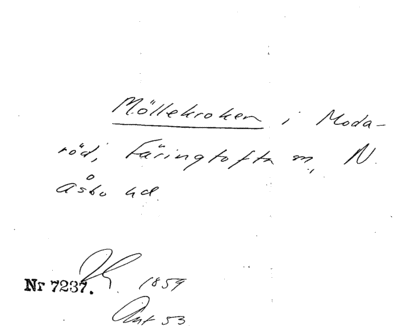 Möllekroken i Moda-
röd, Färingtofta sn, N.
Åsbo hd.
Nr 7237. 1859
Akt 53